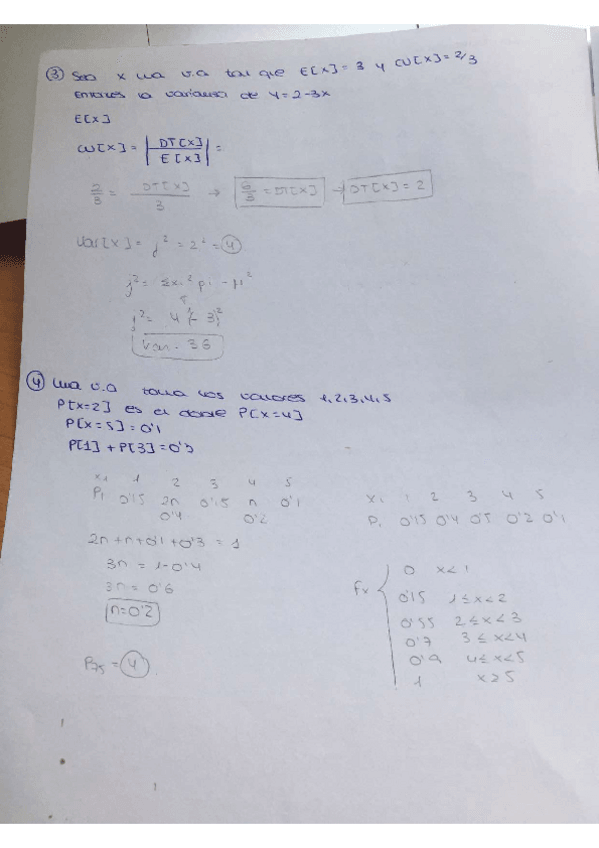 ③ Sea x una v.a tal que E[x] = 3 y CV[x] = 2/3
Entonces la varianza de Y = 2-3x
E[x]
CV[x] = | DT[x] / E[x] | =
2/3 = DT[x] / 3 → 6/3 = DT[x] → DT[x] = 2
Var[x] = σ² = 2² = 4
σ² = Σx² pi - μ²
σ² = 4 (-3)²
Var = 36
④ Una v.a toma los valores 1,2,3,4,5
P[x=2] es el doble P[x=4]
P[x=5] = 0'1
P[1] + P[3] = 0'3
xi 1 2 3 4 5
Pi 0'15 2n 0'15 n 0'1
0'4 0'2
2n+n+0'1+0'3 = 1
3n = 1-0'4
3n = 0'6
n = 0'2
P75 = 4
xi 1 2 3 4 5
Pi 0'15 0'4 0'15 0'2 0'1
Fx
0 x<1
0'15 1≤x<2
0'55 2≤x<3
0'7 3≤x<4
0'9 4≤x<5
1 x≥5